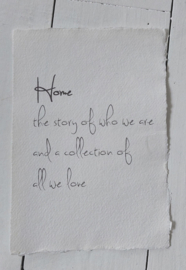 Home
the story of who we are
and a collection of
all we love